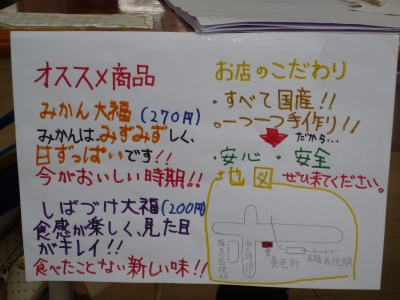 オススメ商品
みかん大福(270円)
みかんは、みずみずしく、
甘ずっぱいです!!
今がおいしい時期!!
しばづけ大福(200円)
食感が楽しく、見た目
がキレイ!!
食べたことない新しい味!!
お店のこだわり
・すべて国産!!
。一つ一つ手作り!!
だから…
・安心・安全
地図
ぜひ来てください。
養老軒